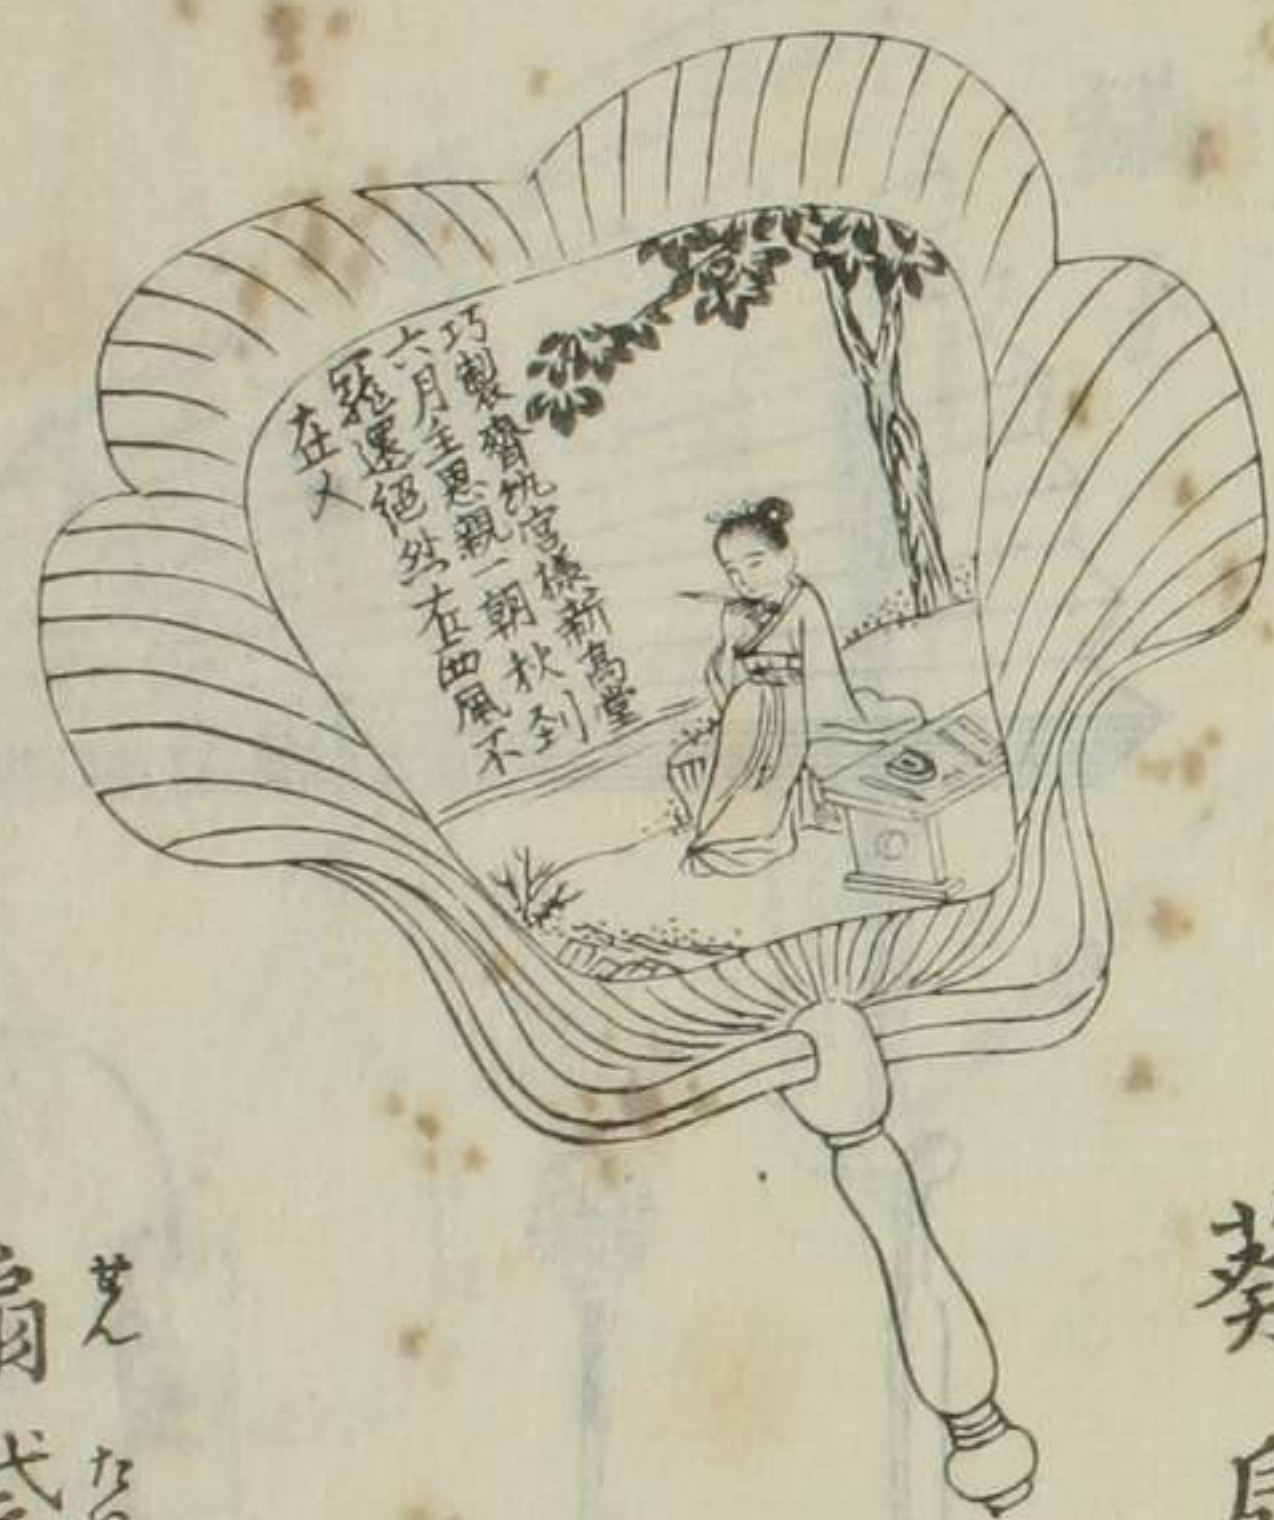 葵
巧製齊紈宮様新高堂
六月主恩親一朝秋到
寵還絕然在西風不
在人
せん
扇